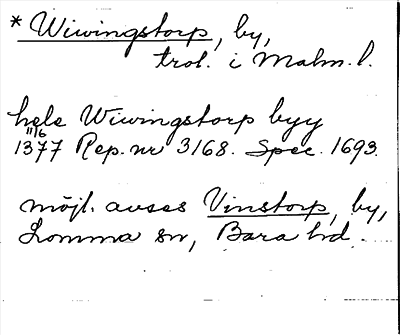 * Wiwingstorp, by,
trol. i Malm. l.
hele Wiwingstorp byy
11/6
1377 Rep. nr 3168. Spec. 1693.
möjl. avses Vinstorp, by,
Lomma sn, Bara hd.